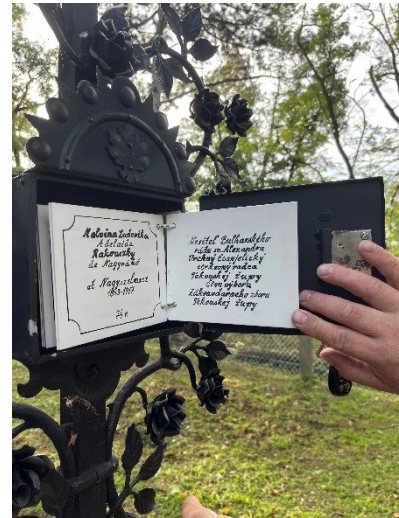 Malvina Ludovika
Adelaida
Rakovszky
de Nagyrákó
et Nagyselmecz
74 r.
Nositeľ Bulharského
rádu sv. Alexandra
Dvorný Evanjelický
cirkevný radca
Tekovskej župy
Člen výboru
Zákonodarného zboru
Tekovskej župy